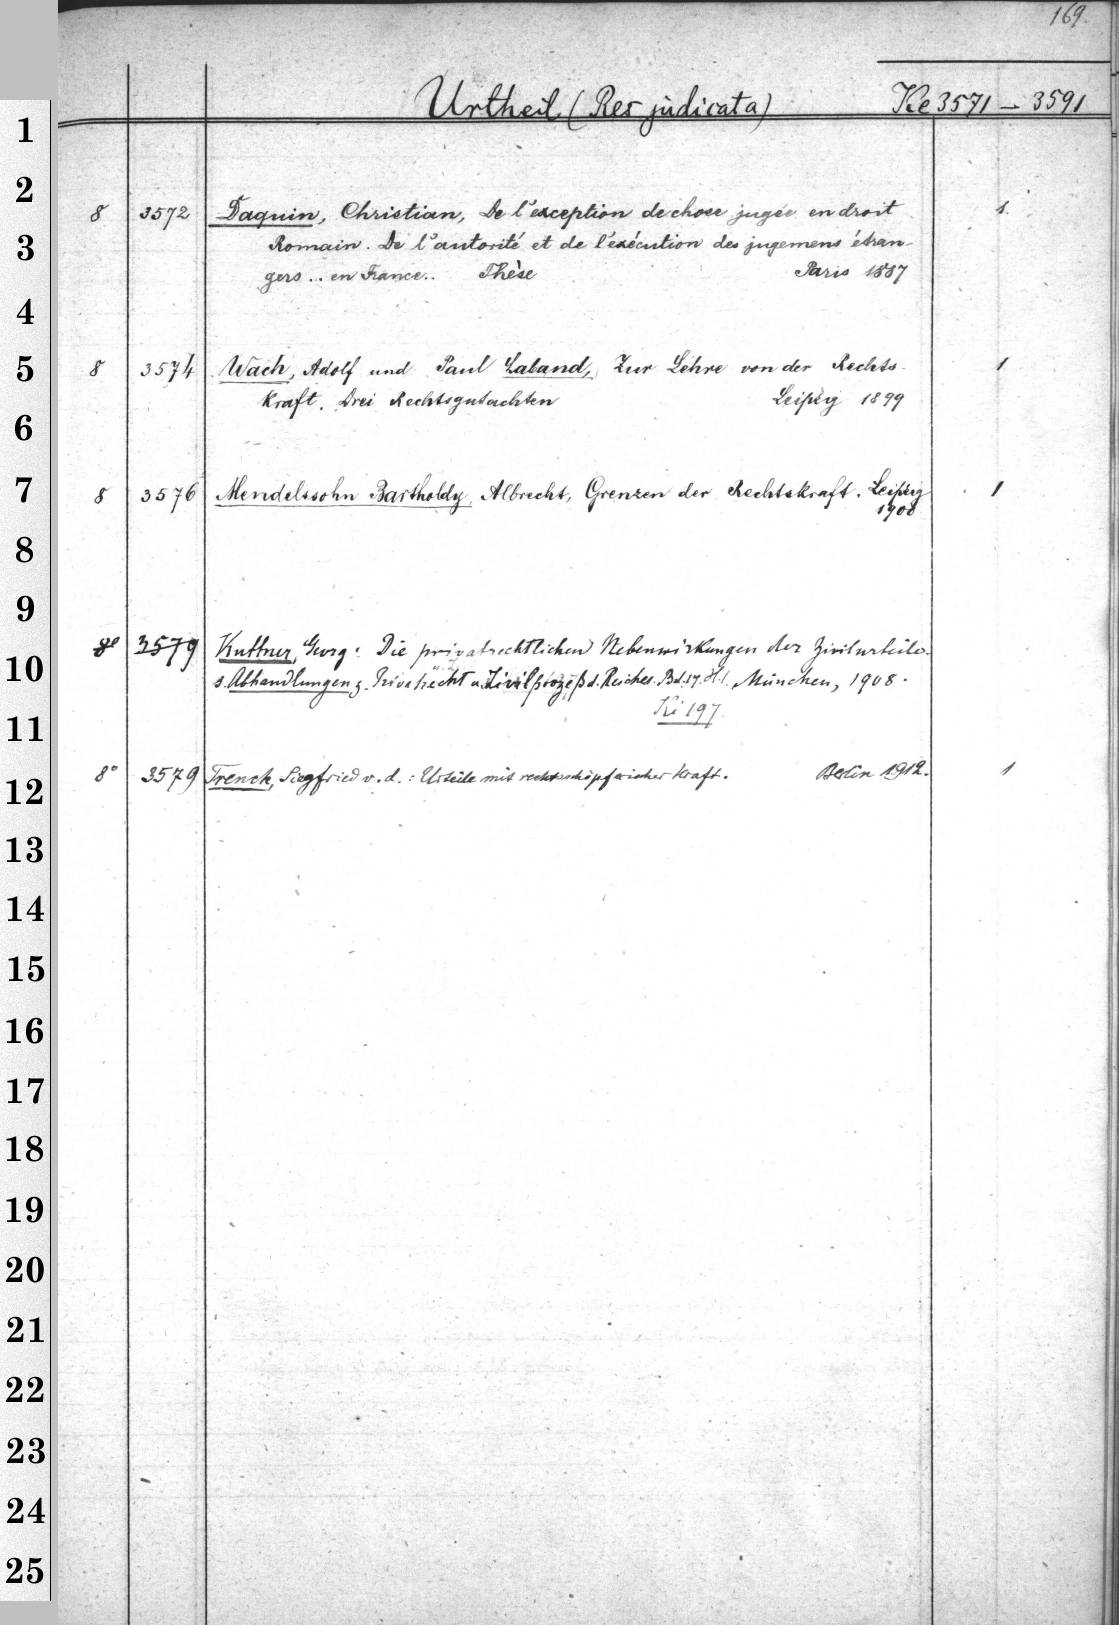 169.
Urtheil (Res judicata) Ke 3571 – 3591
1
2
8 3572 Daquin, Christian, De l'exception de chose jugée en droit 1.
3
Romain. De l'autorité et de l'exécution des jugemens étran-
gers .. en France.. Thèse Paris 1887
4
5
8 3574 Wach, Adolf und Paul Laband, Zur Lehre von der Rechts- 1
kraft. Drei Rechtsgutachten Leipzig 1899
6
7
8 3576 Mendelssohn Bartholdy, Albrecht, Grenzen der Rechtskraft. Leipzig 1
1900
8
9
8° 3579 Kuttner, Georg: Die privatrechtlichen Nebenwirkungen der Zivilurteile.
10
s. Abhandlungen z. Privatrecht u. Zivilprozeß d. Reiches. Bd. 17. H. 1. München, 1908.
Ki 197.
11
8° 3579 Trenck, Siegfried v. d.: Urteile mit rechtsschöpferischer Kraft. Berlin 1912. 1
12
13
14
15
16
17
18
19
20
21
22
23
24
25